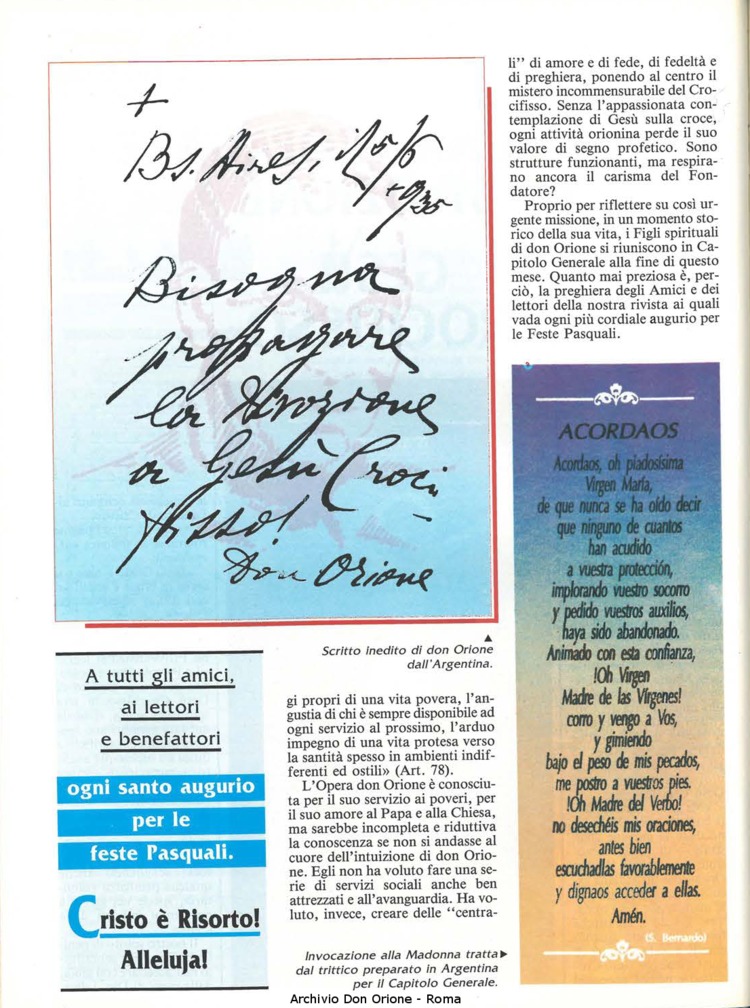 +
Bs. Aires, il 5/6
+ 935
Bisogna
propagare
la divozione
a Gesù Croci
fisso!
Don Orione
▲
Scritto inedito di don Orione
dall'Argentina.
A tutti gli amici,
ai lettori
e benefattori
ogni santo augurio
per le
feste Pasquali.
Cristo è Risorto!
Alleluja!
gi propri di una vita povera, l'an-
gustia di chi è sempre disponibile ad
ogni servizio al prossimo, l'arduo
impegno di una vita protesa verso
la santità spesso in ambienti indif-
ferenti ed ostili» (Art. 78).
L'Opera don Orione è conosciu-
ta per il suo servizio ai poveri, per
il suo amore al Papa e alla Chiesa,
ma sarebbe incompleta e riduttiva
la conoscenza se non si andasse al
cuore dell'intuizione di don Orio-
ne. Egli non ha voluto fare una se-
rie di servizi sociali anche ben
attrezzati e all'avanguardia. Ha vo-
luto, invece, creare delle “centra-
li” di amore e di fede, di fedeltà e
di preghiera, ponendo al centro il
mistero incommensurabile del Cro-
cifisso. Senza l'appassionata con-
templazione di Gesù sulla croce,
ogni attività orionina perde il suo
valore di segno profetico. Sono
strutture funzionanti, ma respira-
no ancora il carisma del Fon-
datore?
Proprio per riflettere su così ur-
gente missione, in un momento sto-
rico della sua vita, i Figli spirituali
di don Orione si riuniscono in Ca-
pitolo Generale alla fine di questo
mese. Quanto mai preziosa è, per-
ciò, la preghiera degli Amici e dei
lettori della nostra rivista ai quali
vada ogni più cordiale augurio per
le Feste Pasquali.
ACORDAOS
Acordaos, oh piadosísima
Virgen María,
de que nunca se ha oldo decir
que ninguno de cuantos
han acudido
a vuestra protección,
implorando vuestro socorro
y pedido vuestros auxilios,
haya sido abandonado.
Animado con esta confianza,
!Oh Virgen
Madre de las Vírgenes!
corro y vengo a Vos,
y gimiendo
bajo el peso de mis pecados,
me postro a vuestros pies.
!Oh Madre del Verbo!
no desechéis mis oraciones,
antes bien
escuchadlas favorablemente
y dignaos acceder a ellas.
Amén.
(S. Bernardo)
Invocazione alla Madonna tratta ▶
dal trittico preparato in Argentina
per il Capitolo Generale.
Archivio Don Orione - Roma